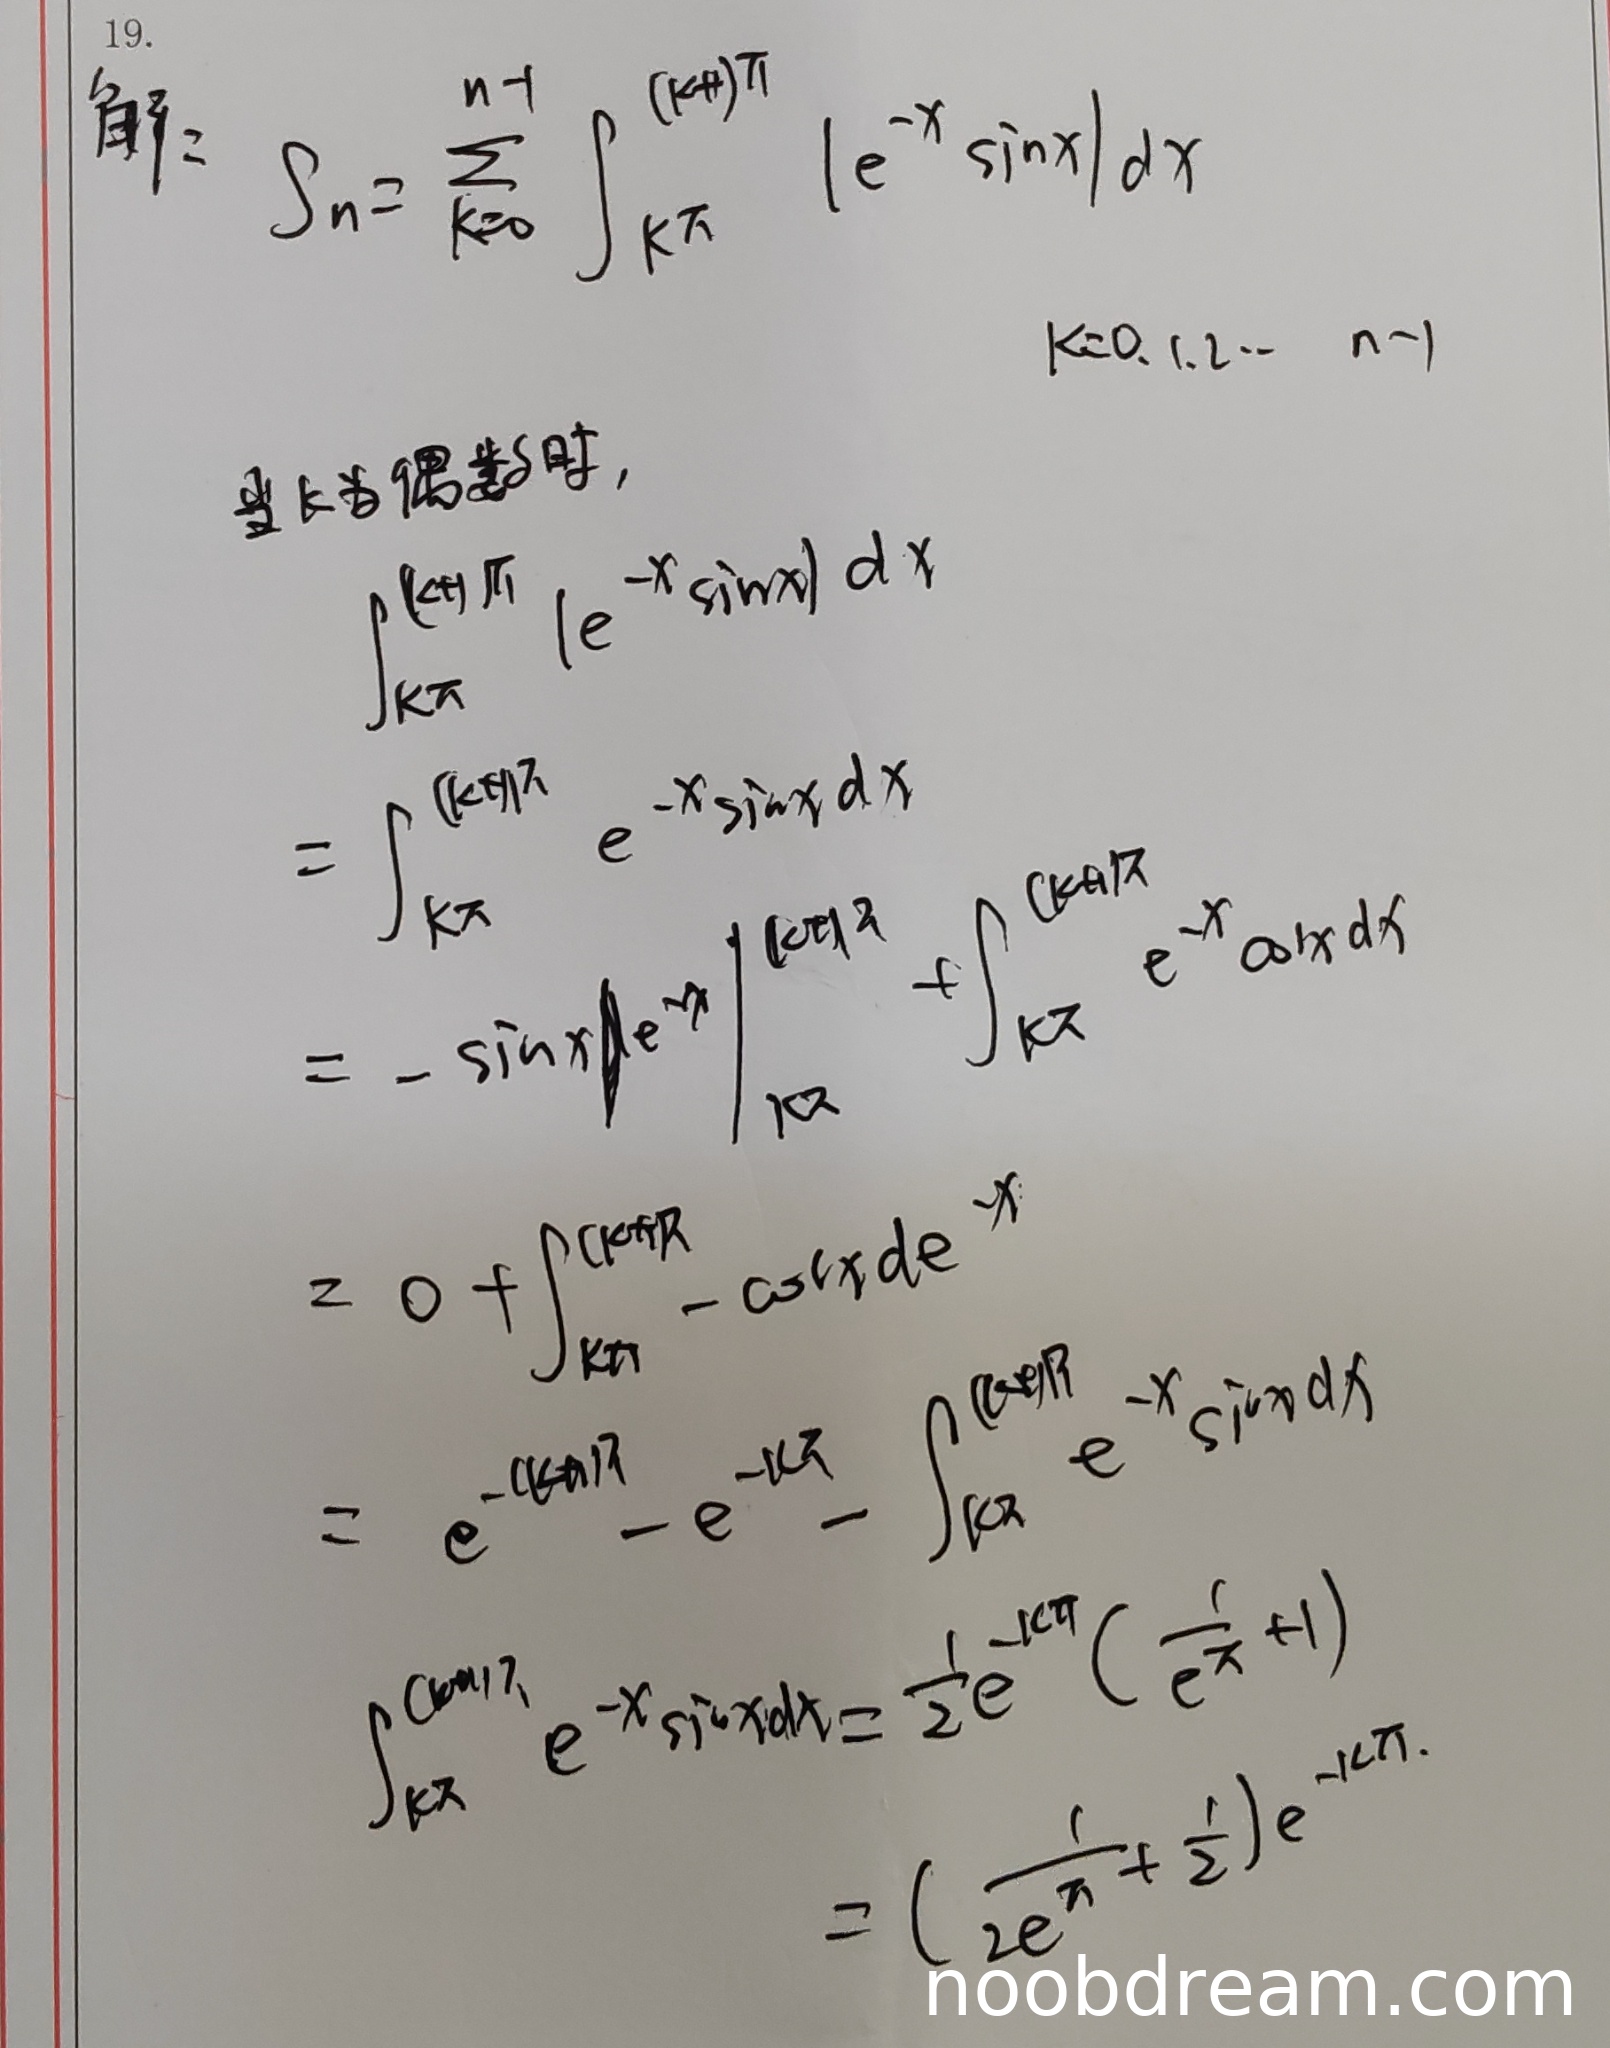 19.
解: Sn = ∑_{k=0}^{n-1} ∫_{kπ}^{(k+1)π} |e^{-x} sinx| dx
k=0.1.2… n-1
当k为偶数时,
∫_{kπ}^{(k+1)π} |e^{-x} sinx| dx
= ∫_{kπ}^{(k+1)π} e^{-x} sinx dx
= - sinx e^{-x} |_{kπ}^{(k+1)π} + ∫_{kπ}^{(k+1)π} e^{-x} cosx dx
= 0 + ∫_{kπ}^{(k+1)π} - cosx de^{-x}
= e^{-(k+1)π} - e^{-kπ} - ∫_{kπ}^{(k+1)π} e^{-x} sinx dx
∫_{kπ}^{(k+1)π} e^{-x} sinx dx = 1/2 e^{-kπ} (1/e^π + 1)
= (1/2e^π + 1/2) e^{-kπ}.
noobdream.com